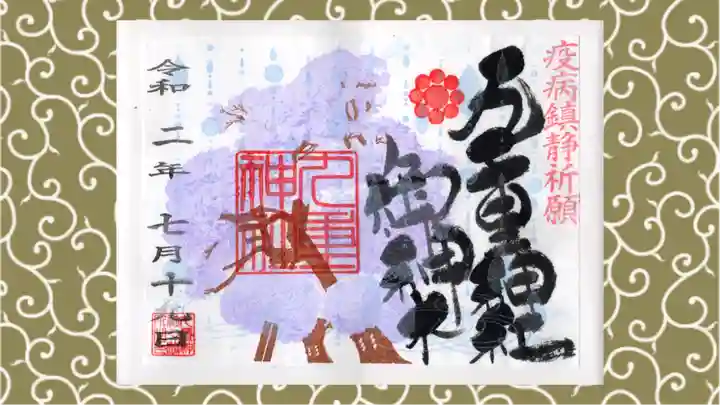 疫病鎮静祈願
九重神社
御神木
九重
神社
令和二年 七月十 日